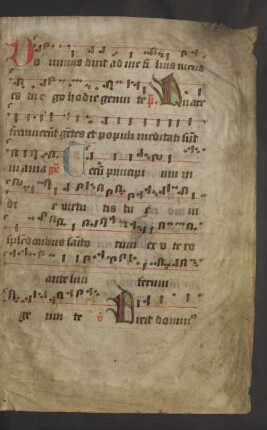 Do minus dixit ad me fi lius meus
es tu e go hodie genui te p̄. Quare
fremuerūt gētes et populi meditati sūt
inania gr̄. Tecū principi um in
di e virtu tis tu e in
splēdoribus sancto rum ex u te ro
ante luci ferum
ge nui te v̄ Dixit dominꝰ